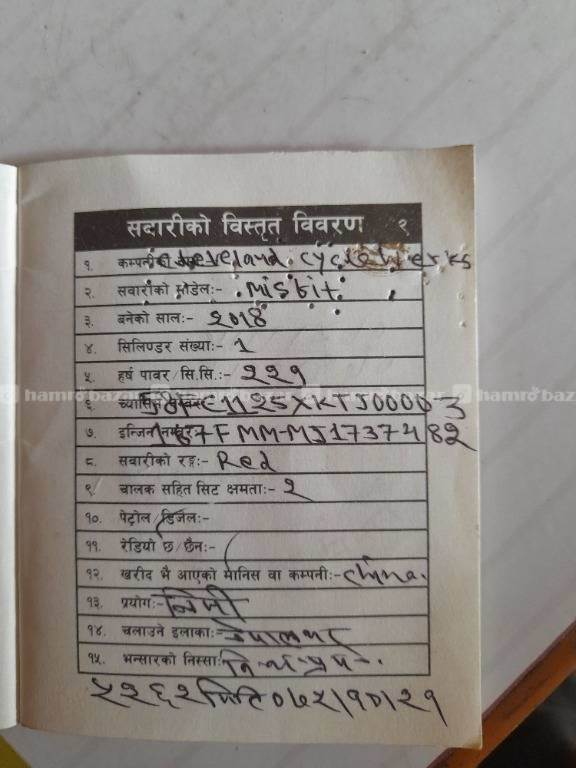 सवारीको विस्तृत विवरण १
१. कम्पनीको cleveland cyclewerks
२. सवारीको मोडेल:- Misfit
३. बनेको साल:- २०१8
४. सिलिण्डर संख्या:- 1
५. हर्ष पावर/सि.सि.:- २२९
६. च्यासिस
७. इन्जिन नम्बर FMM-MJ1737482
८. सवारीको रङ्ग:- Red
९. चालक सहित सिट क्षमता:- २
१०. पेट्रोल/डिजेल:-
११. रेडियो छ/छैन:-
१२. खरीद भै आएको मानिस वा कम्पनी:- china.
१३. प्रयोग:- निजी
१४. चलाउने इलाका:- नेपालभर
१५. भन्सारको निस्सा:-
५२६२ मिति ०७५।१०।२१
hamrobazar
hamrobaz